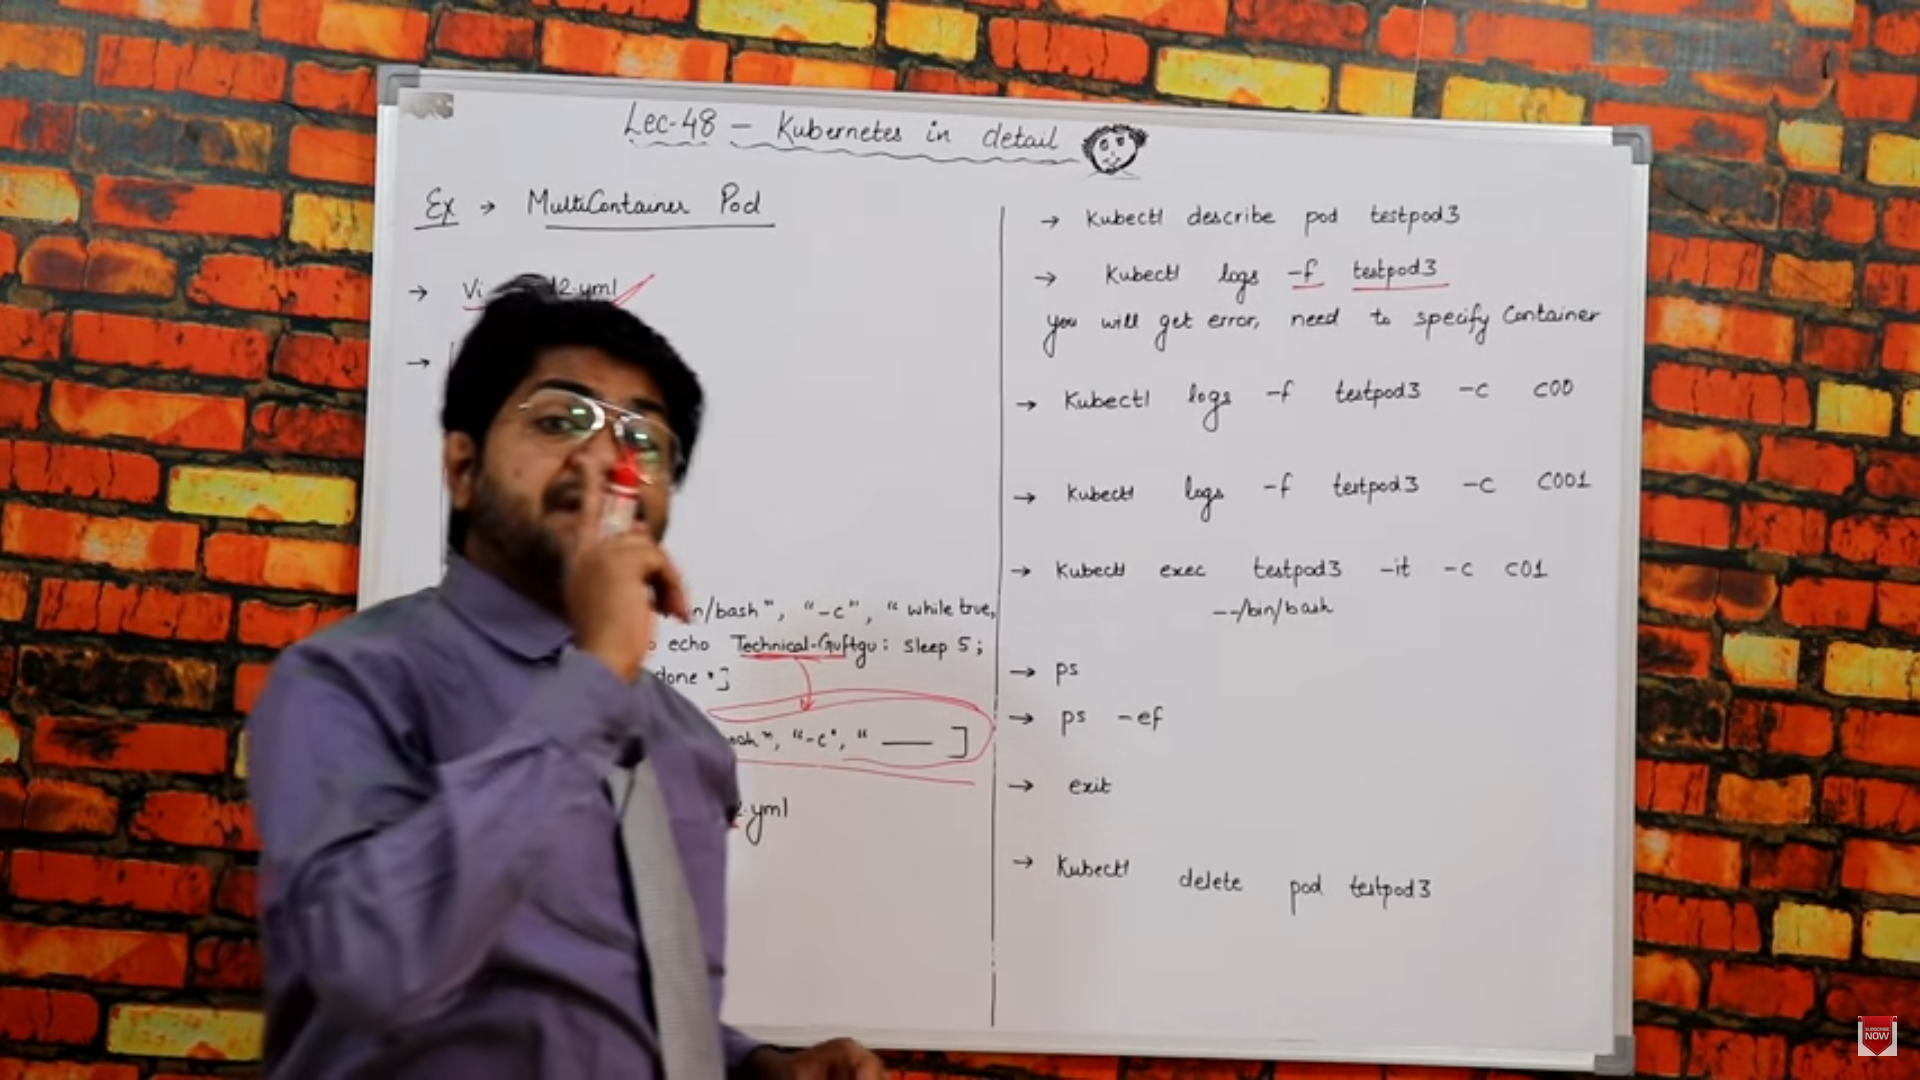 Lec-48 - Kubernetes in detail
Ex → MultiContainer Pod
→ Vi d2.yml
→
n/bash", "-c", "while true,
o echo Technical-Guftgu: sleep 5;
done "]
ash", "-c", " ___ ]
2.yml
→ Kubectl describe pod testpod3
→ Kubectl logs -f testpod3
you will get error, need to specify Container
→ Kubectl logs -f testpod3 -c c00
→ Kubectl logs -f testpod3 -c C001
→ Kubectl exec testpod3 -it -c c01
--/bin/bash
→ ps
→ ps -ef
→ exit
→ Kubectl delete pod testpod3
SUBSCRIBE
NOW